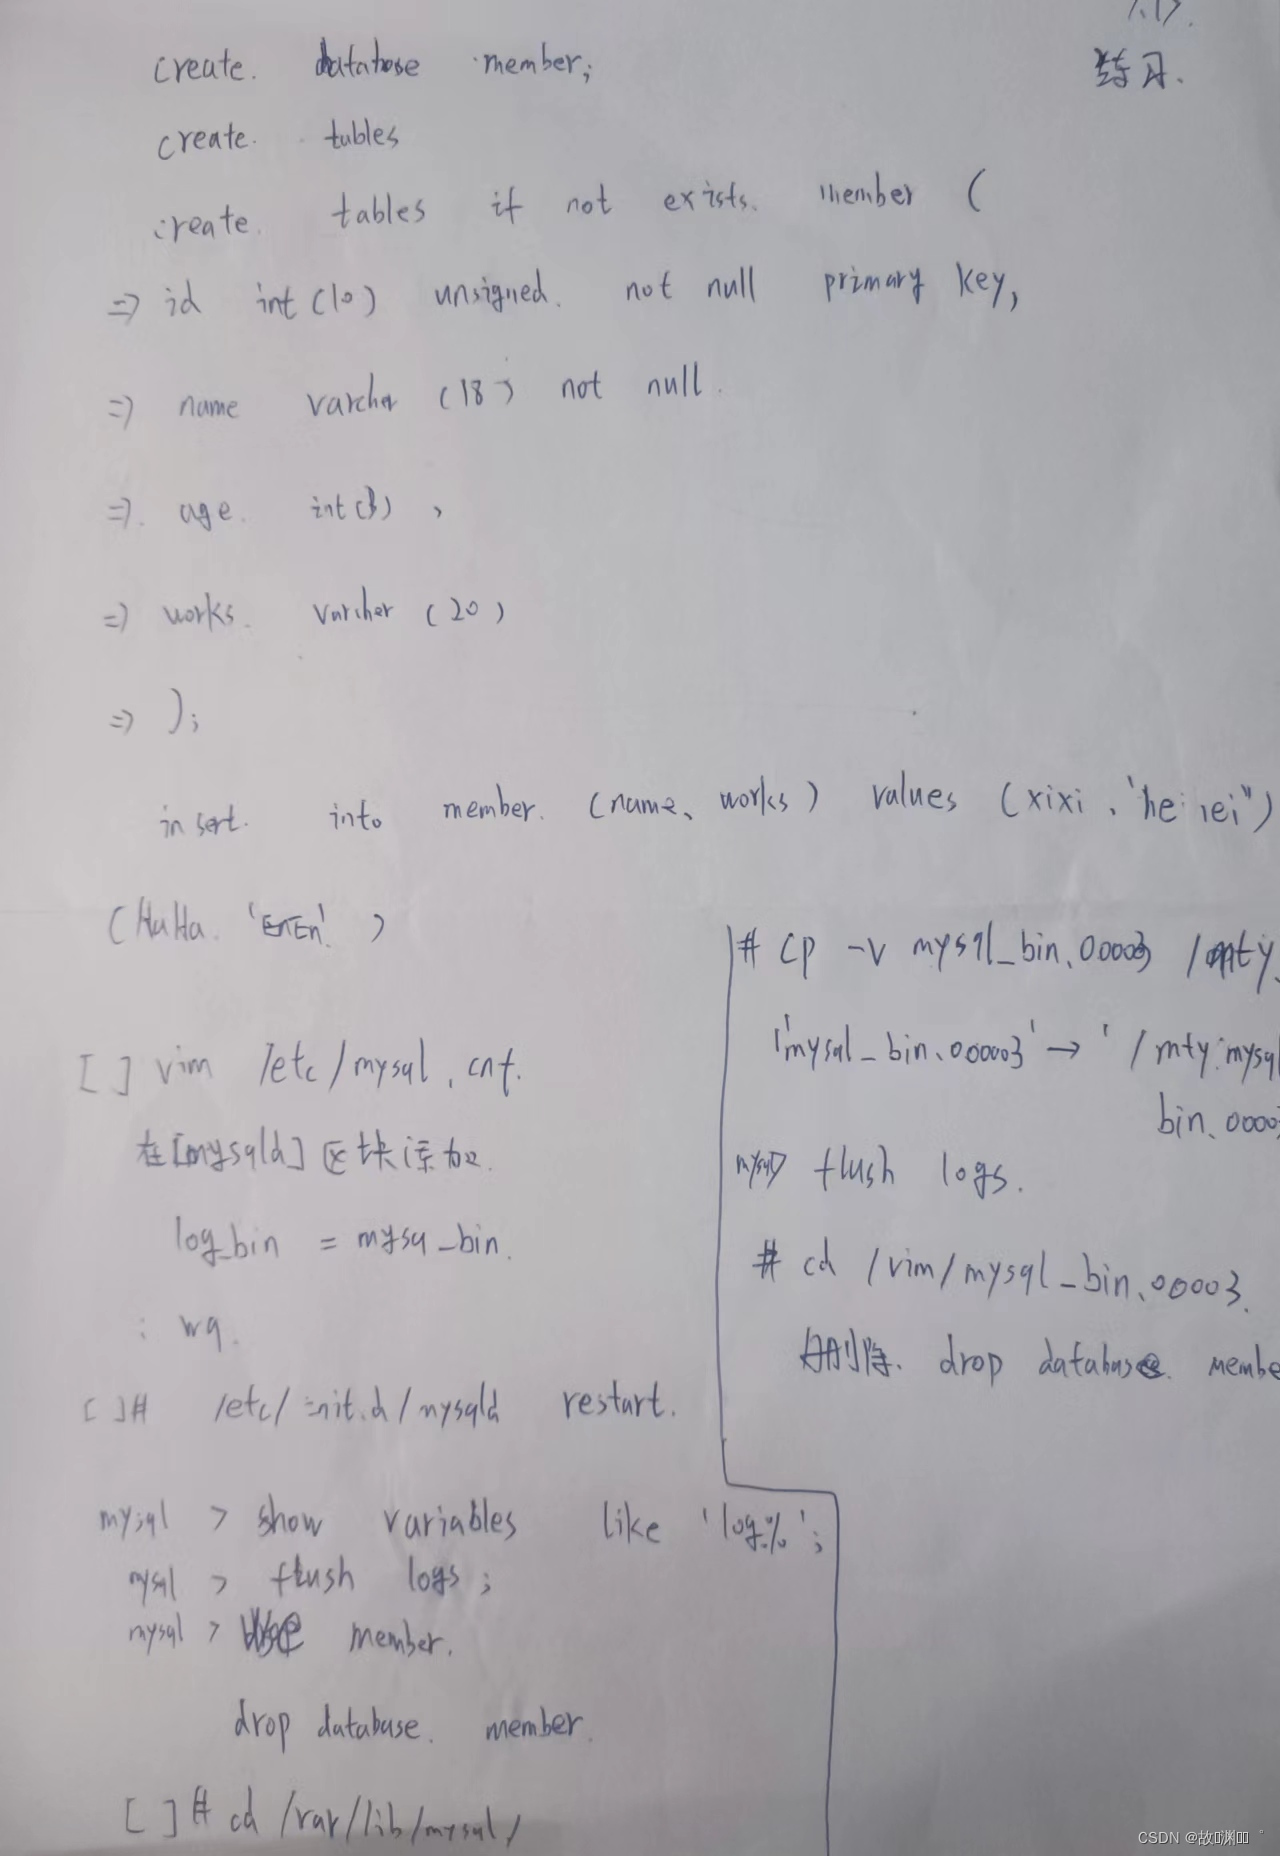 1.17.
练习.
create. database member;
create. tables
create. tables if not exists. member (
=> id int(10) unsigned. not null primary key,
=> name varcher (18) not null.
=>. age. int(3) ,
=> works. varcher (20)
=> );
insert. into member. (name、works) values (xixi 、
(HaHa. 'EnEn' )
[ ] vim /etc/mysql .cnf.
在[mysqld]区块添加.
log_bin = mysq_bin.
: wq.
[ ]# /etc/init.d/mysqld restart.
mysql > show variables like 'log%';
mysql > flush logs ;
mysql > use member.
drop database. member.
[ ]# cd /var/lib/mysql/
# cp -v mysql_bin、00003 /mty
'mysql_bin、000003' → '/mty:mysql
bin、0000
mysql> flush logs.
# cd /vim/mysql_bin、00003.
删除. drop database. membe
CSDN @故渊